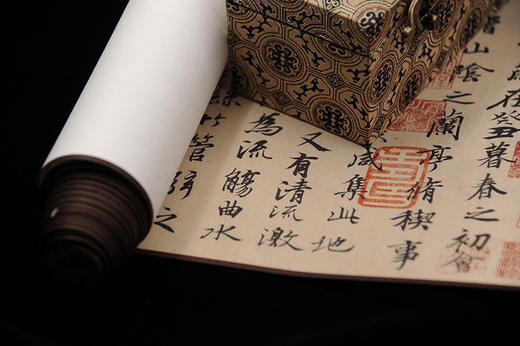 在癸丑暮春之初會
山陰之蘭亭脩禊事
咸集此地
又有清流激
為流觴曲水
竹管弦之